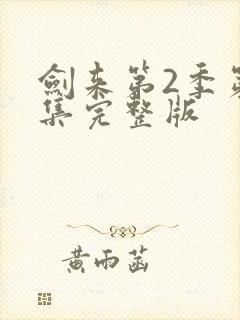 劍来第2季第
集完整版
黄雨菡